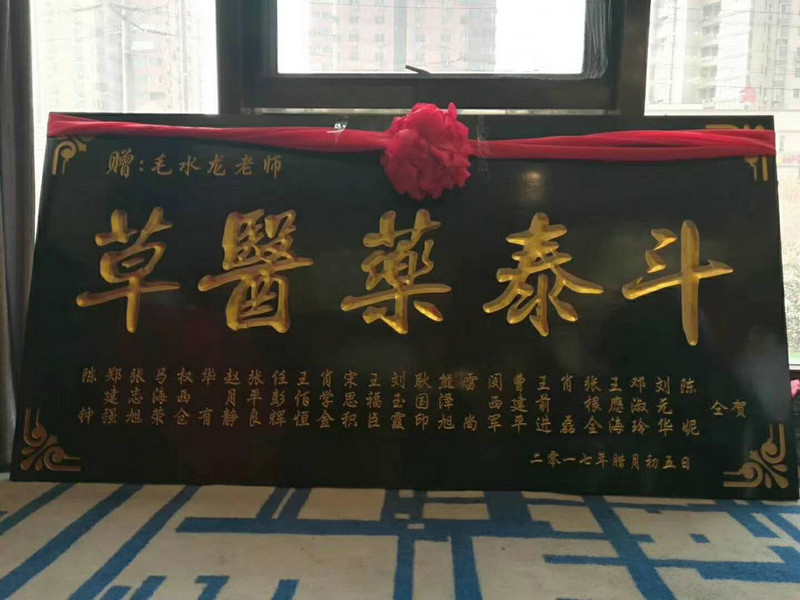 赠:毛水龙老师
草醫藥泰斗
陈钟 郑建强 张志旭 马海荣 权西仓 华有 赵月静 张平良 任彭辉 王佰恒 肖学金 宋思积 王福臣 刘玉霞 耿国印 熊泽旭 雷尚 闵西军 曹建平 王前进 肖磊 张振全 王應涛 邓淑玲 刘元华 陈妮 仝贺
二零一七年腊月初五日